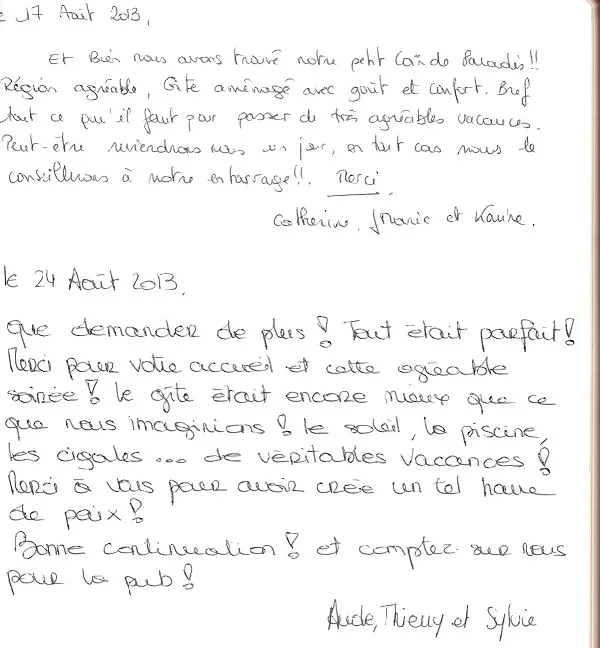 le 17 Août 2013,
Et Bien nous avons trouvé notre petit Coin de Paradis!!
Région agréable, Gîte aménagé avec goût et confort. Bref
tout ce qu'il faut pour passer de très agréables vacances.
Peut-être reviendrons nous un jour, en tout cas nous le
conseillerons à notre entourage!!. Merci
Catherine, JMarie et Karine.
le 24 Août 2013,
que demander de plus! Tout était parfait!
Merci pour votre accueil et cette agréable
soirée! le gîte était encore mieux que ce
que nous imaginions! le soleil, la piscine,
les cigales... de véritables vacances!
Merci à vous pour avoir crée un tel havre
de paix!
Bonne continuation! et comptez sur nous
pour la pub!
Aude, Thierry et Sylvie